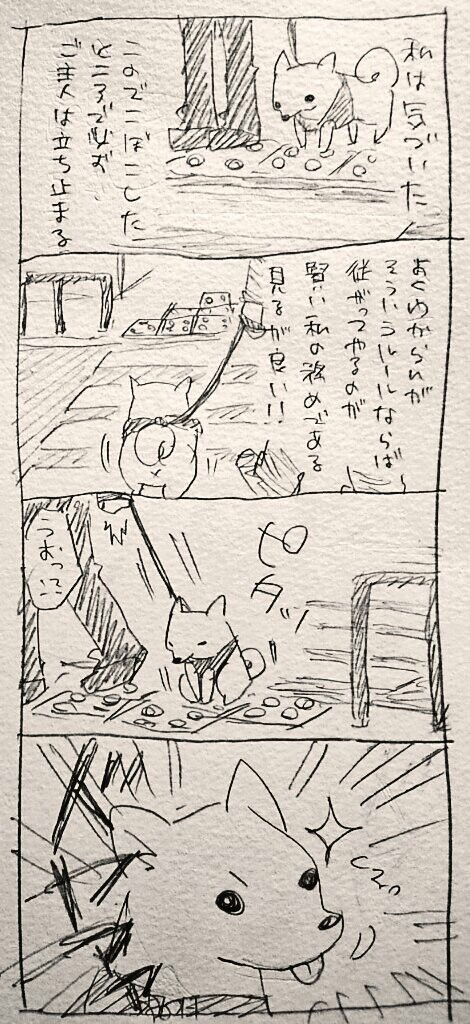 私は気づいた
このでこぼこした
ところで必ず
ご主人は立ち止まる
よくわからんが
そういうルールならば
従がってやるのが
賢い私の務めである
見るが良い!!
ピタッ
うおって!!